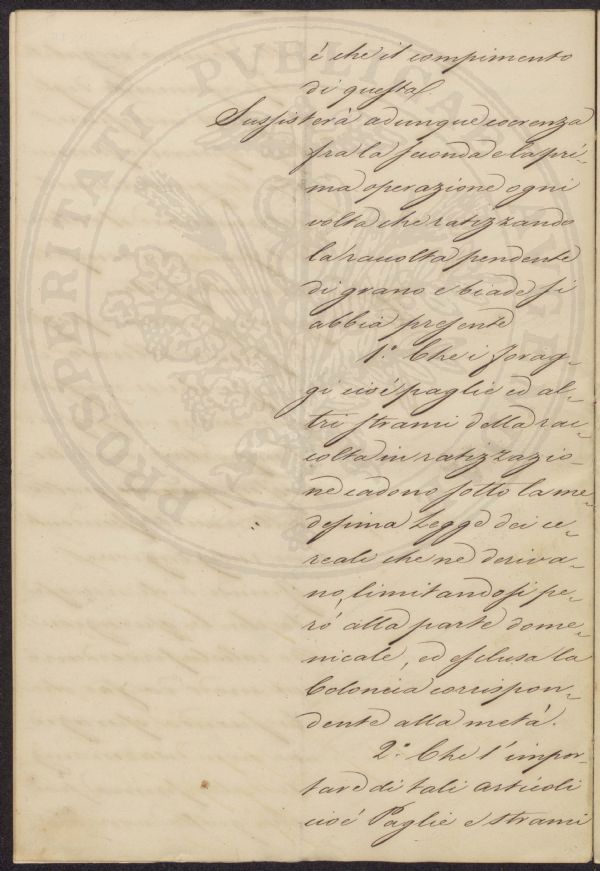 è che il compimento
di questa
Sussisterà adunque coerenza
fra la seconda e la pri-
ma operazione ogni
volta che ratizzando
la raccolta pendente
di grano e biade si
abbia presente
1.° Che i forag-
gi cioè paglie ed al-
tri strami della rac-
colta in ratizzazio-
ne cadono sotto la me-
desima Legge dei ce-
reali che ne deriva-
no, limitandosi pe-
rò alla parte dome-
nicale, ed esclusa la
Colonica corrispon-
dente alla metà.
2.° Che l'impor-
tare di tali articoli
cioè Paglie e strami
PROSPERITATI PVBLICAE AVGENDAE